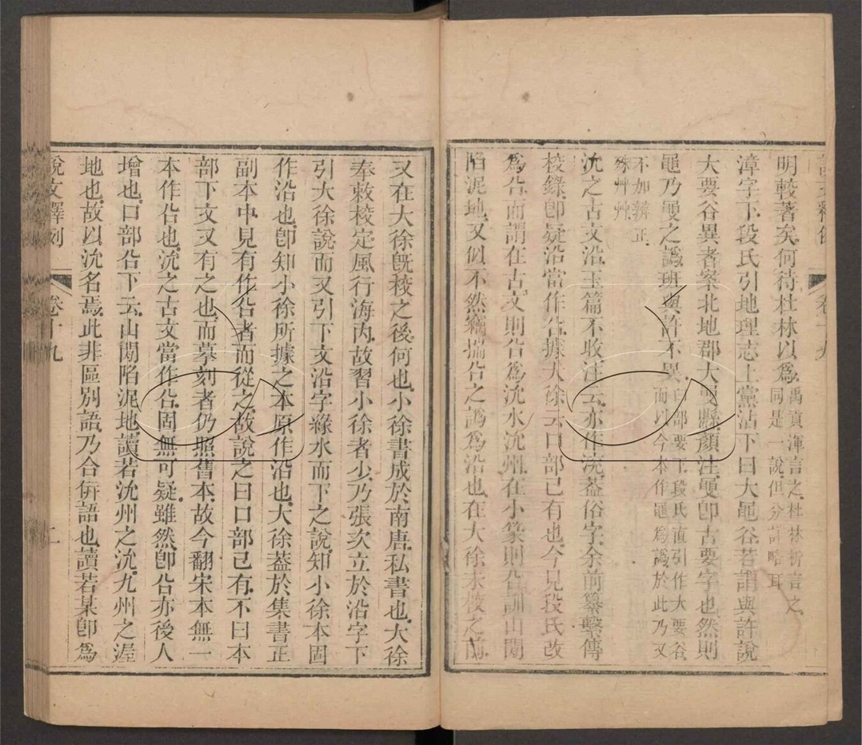 明較著矣何待杜林以爲禹貢渾言之杜林析言之
同是一說但分詳略耳
漳字下段氏引地理志上黨沾下曰大黽谷若謂與許說
大要谷異者案北地郡大㚔縣顏注㚔卽古要字也然則
黽乃㚔之譌班與許不異臼部要下段氏直引作大要谷
而以今本作黽爲譌於此乃又
不如辨正
沇之古文沿玉篇不收注云亦作渷蓋俗字余前纂繫傳
校錄卽疑沿當作㕣據大徐云口部已有也今見段氏改
爲㕣而謂在古文則㕣爲沇水沇州在小篆則㕣訓山閒
陷泥地又似不然竊揣㕣之譌爲沿也在大徐未校之前
又在大徐旣校之後何也小徐書成於南唐私書也大徐
奉敕校定風行海內故習小徐者少乃張次立於沿字下
引大徐說而又引下文沿字緣水而下之說知小徐本固
作沿也卽知小徐所據之本原作沿也大徐蓋於集書正
副本中見有作㕣者而從之故說之曰口部已有不曰本
部下文又有之也而摹刻者仍照舊本故今翻宋本無一
本作㕣也沇之古文當作㕣固無可疑雖然卽㕣亦後人
增也口部㕣下云山閒陷泥地讀若沇州之沇九州之渥
地也故以沇名焉此非區別語乃合併語也讀若某卽爲
說文釋例
卷十九
二